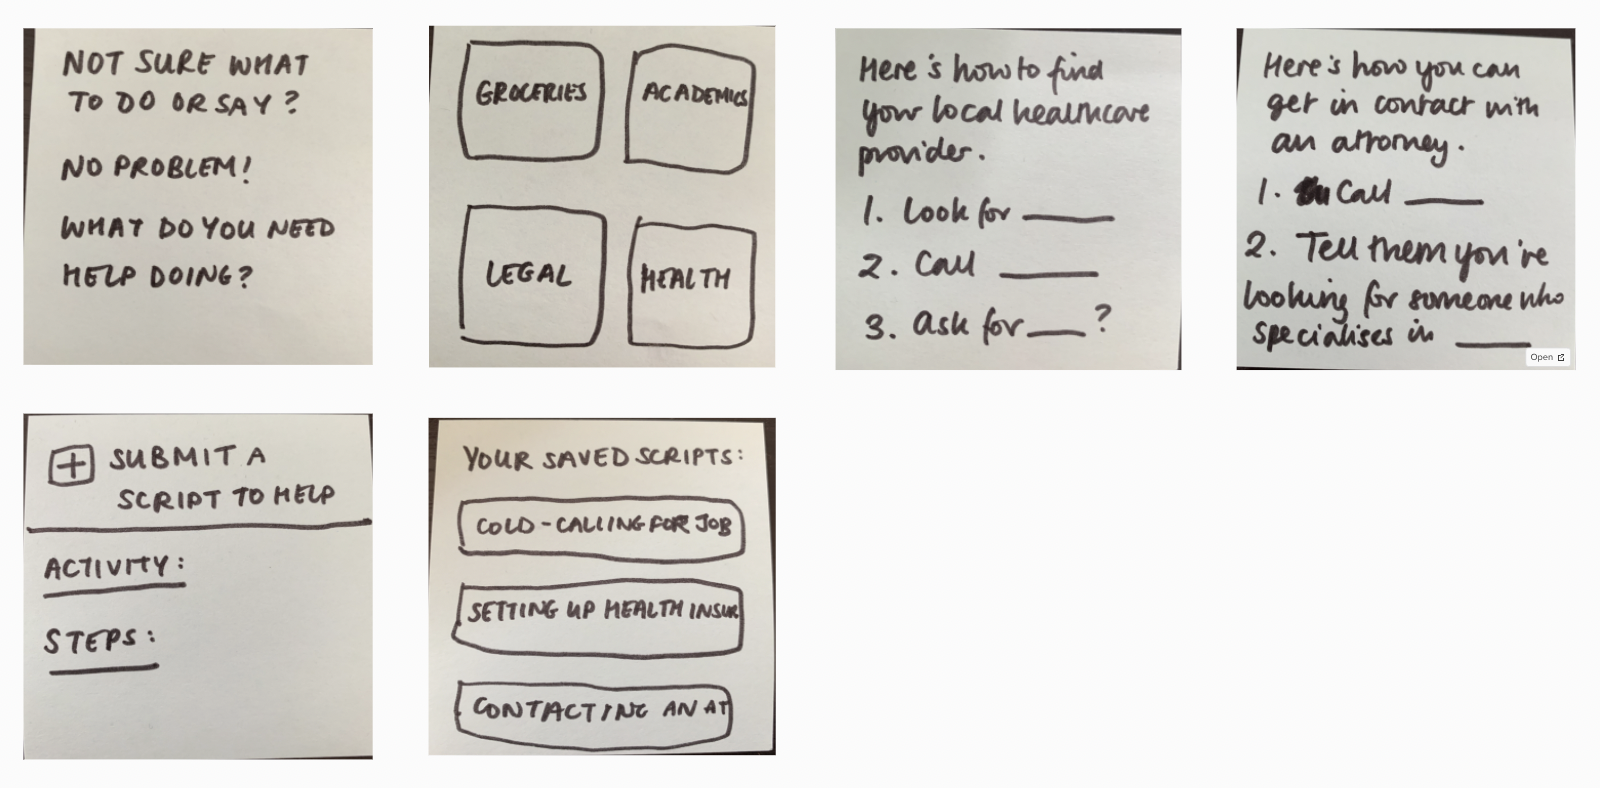 NOT SURE WHAT
TO DO OR SAY?
NO PROBLEM!
WHAT DO YOU NEED
HELP DOING?
GROCERIES
ACADEMICS
LEGAL
HEALTH
Here's how to find
your local healthcare
provider.
1. Look for
2. Call
3. Ask for ?
Here's how you can
get in contact with
an attorney.
1. Call
2. Tell them you're
looking for someone who
specialises in
Open
SUBMIT A
SCRIPT TO HELP
ACTIVITY:
STEPS:
YOUR SAVED SCRIPTS:
COLD-CALLING FOR JOB
SETTING UP HEALTH INSUR
CONTACTING AN AT